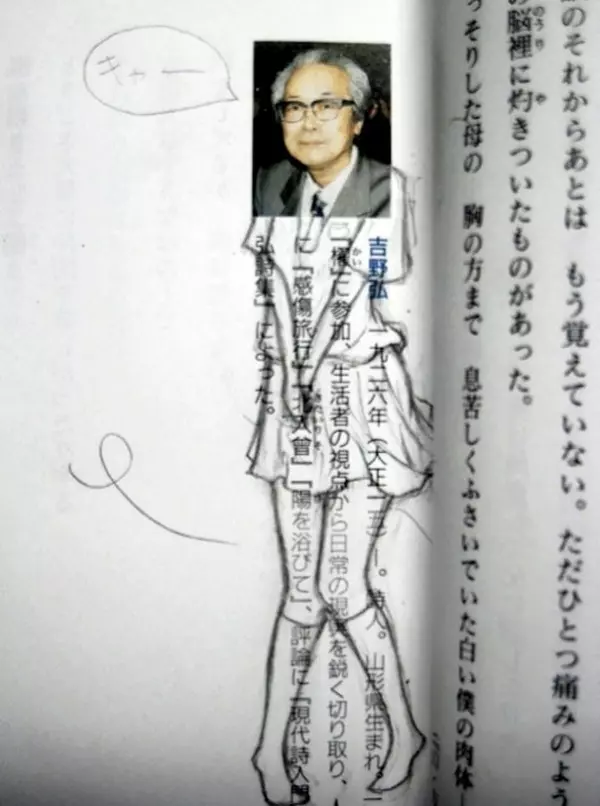 のそれからあとは　もう覚えていない。ただひとつ痛みのよう
の脳裡に灼きついたものがあった。
っそりした母の　胸の方まで　息苦しくふさいでいた白い僕の肉体
吉野弘　一九二六年（大正一五）―。詩人。山形県生まれ。
「櫂」に参加、生活者の視点から日常の現実を鋭く切り取り、
に「感傷旅行」「北入曽」「陽を浴びて」、評論に「現代詩入門
弘詩集」によった。
キャー